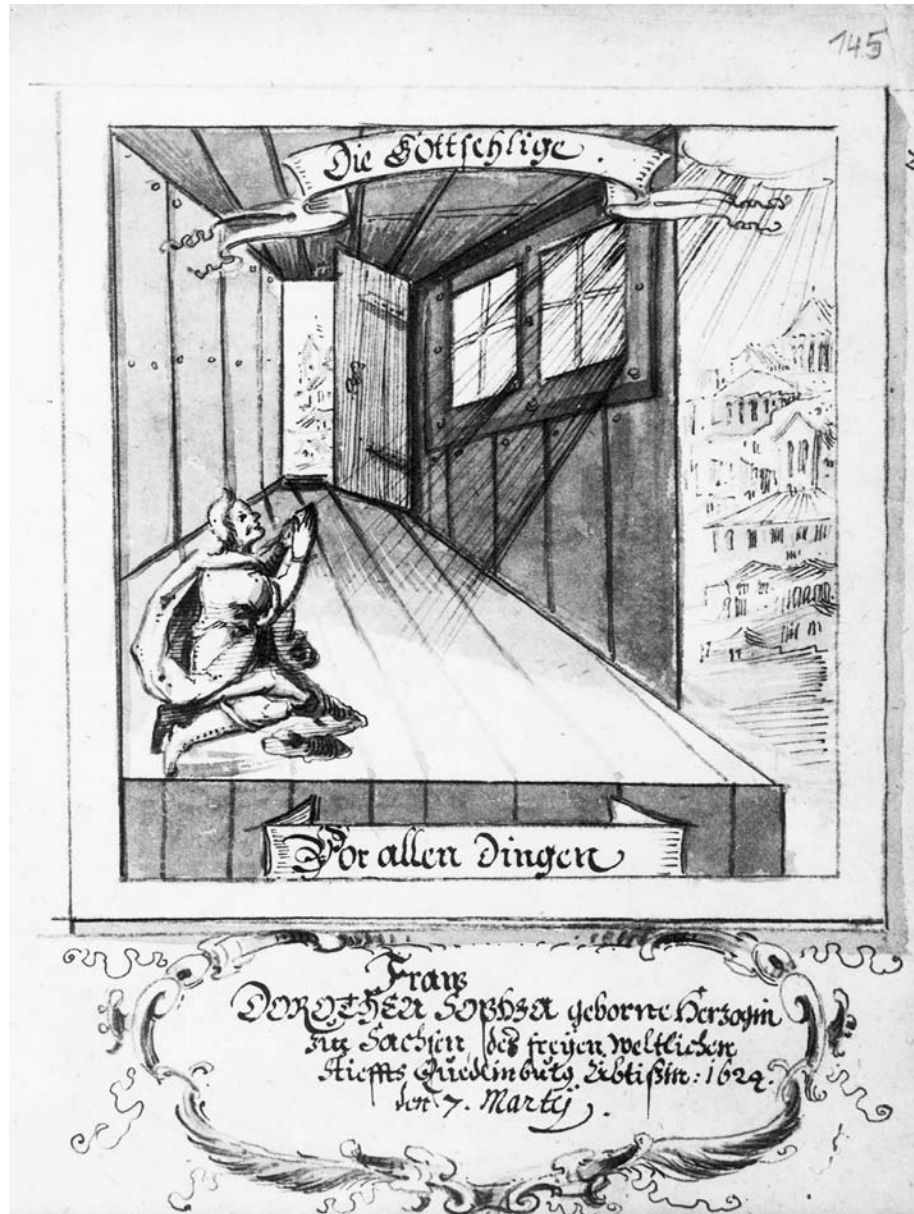 145
Die Gottsehlige.
Vor allen Dingen
Fraw
DOROTHEA SOPHIA geborne Herzogin
zu Sachsen des freyen Weltlichen
Stieffts Quedlinburg Ebtißin: 1624.
den 7. Martij.